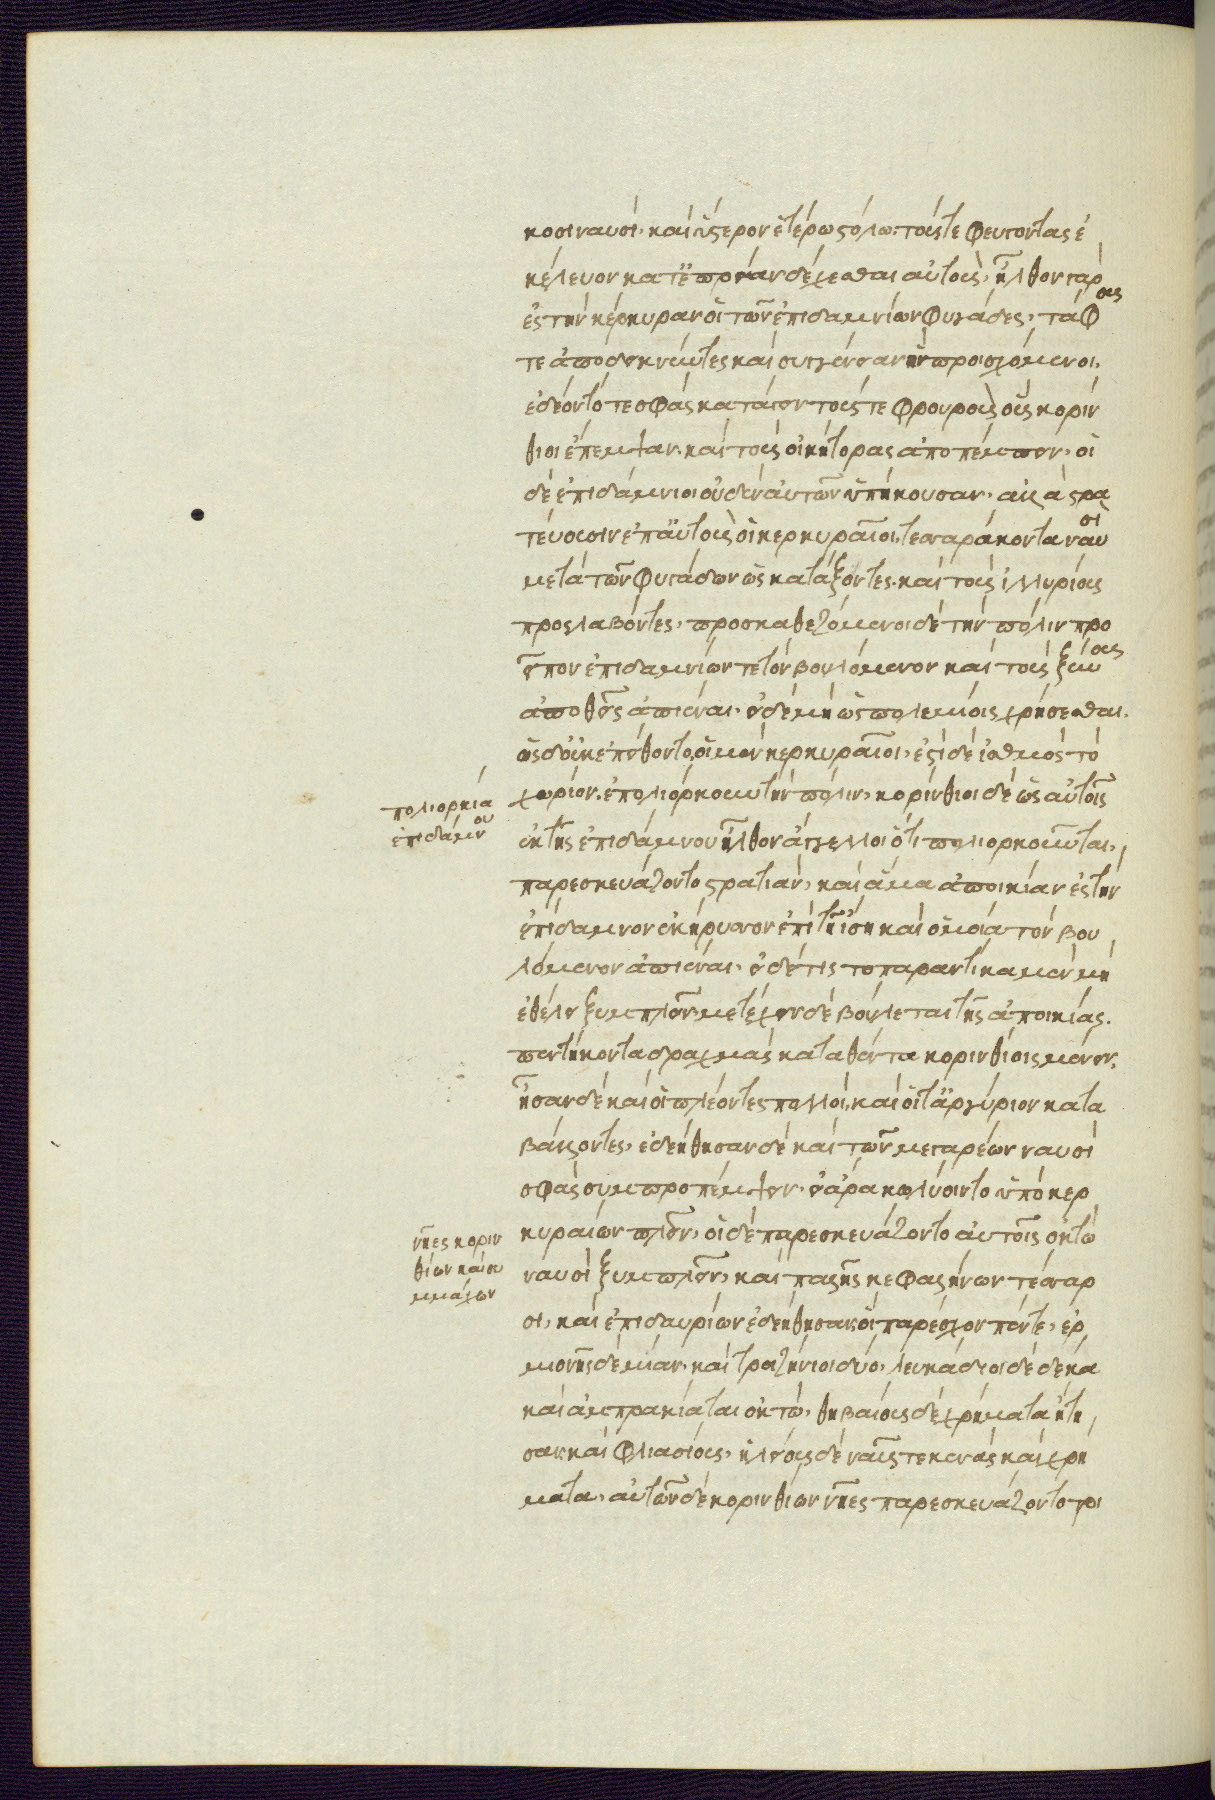 κοσι ναυσὶ· καὶ ὕστερον ἑτέρω στόλω· τούς τε φεύγοντας ἐ
κέλευον κατ' ἐπήρειαν δέχεσθαι αὐτούς, ἦλθον γὰρ
ἐς τὴν κέρκυραν οἱ τῶν ἐπιδαμνίων φυγάδες, τάφους
τε ἀποδεικνύντες καὶ συγγένειαν ἣν προισχόμενοι.
ἐδέοντό τε σφᾶς κατάγειν τούς τε φρουροὺς οὓς κορίν
θιοι ἔπεμψαν. καὶ τοὺς οἰκήτορας ἀποπέμπειν. οἱ
δὲ ἐπιδάμνιοι οὐδὲν αὐτῶν ὑπήκουσαν. ἀλλὰ στρα
τεύουσιν ἐπ' αὐτοὺς οἱ κερκυραῖοι. τεσσαράκοντα ναυσὶ
μετὰ τῶν φυγάδων ὡς κατάξοντες. καὶ τοὺς ἰλλυρίους
προσλαβόντες, προσκαθεζόμενοι δὲ τὴν πόλιν προ
εῖπον ἐπιδαμνίων τε τὸν βουλόμενον καὶ τοὺς ξένους
ἀπαθεῖς ἀπιέναι. εἰ δὲ μὴ ὡς πολεμίοις χρήσεσθαι.
ὡς δ' οὐκ ἐπείθοντο, οἱ μὲν κερκυραῖοι, ἔστι δὲ ἰσθμὸς τὸ
χωρίον. ἐπολιόρκουν τὴν πόλιν, κορίνθιοι δὲ ὡς αὐτοῖς
ἐκ τῆς ἐπιδάμνου ἦλθον ἄγγελλοι ὅτι πολιορκοῦνται,
παρεσκευάζοντο στρατιάν, καὶ ἅμα ἀποικίαν ἐς τὴν
ἐπίδαμνον ἐκήρυσσον ἐπὶ τῆ ἴση καὶ ὁμοία τὸν βου
λόμενον ἀπιέναι. εἰ δέ τις τοπαραυτίκα μὲν μὴ
ἐθέλει ξυμπλεῖν μετέχειν δὲ βούλεται τῆς ἀποικίας.
πεντήκοντα δραχμὰς καταθέντα κορινθίοις μένειν.
ἦσαν δὲ καὶ οἱ πλέοντες πολλοί, καὶ οἱ τ' ἀργύριον κατα
βάλλοντες, ἐδεήθησαν δὲ καὶ τῶν μεγαρέων ναυσὶ
σφᾶς συμπροπέμψειν. εἰ ἄρα κωλύοιντο ὑπὸ κερ
κυραίων πλεῖν, οἱ δὲ παρεσκευάζοντο αὐτοῖς ὀκτὼ
ναυσὶ ξυμπλεῖν, καὶ παλῆς κεφαλήνων τέσσαρ
σι, καὶ ἐπιδαυρίων ἐδεήθησαν. οἳ παρέσχον πέντε, ἑρ
μιονῆς δὲ μίαν, καὶ τραζήνιοι δύο, λευκάδιοι δὲ δέκα
καὶ ἀμπρακιάται ὀκτώ, θηβαίους δὲ χρήματα ἤτη
σαν. καὶ φλιασίους, ἠλείους δὲ ναῦς τε κενὰς καὶ χρή
ματα, αὐτῶν δὲ κορινθίων νῆες παρεσκευάζοντο τρι
πολιορκία
ἐπιδάμνου
νῆες κοριν
θίων καὶ συ
μμάχων